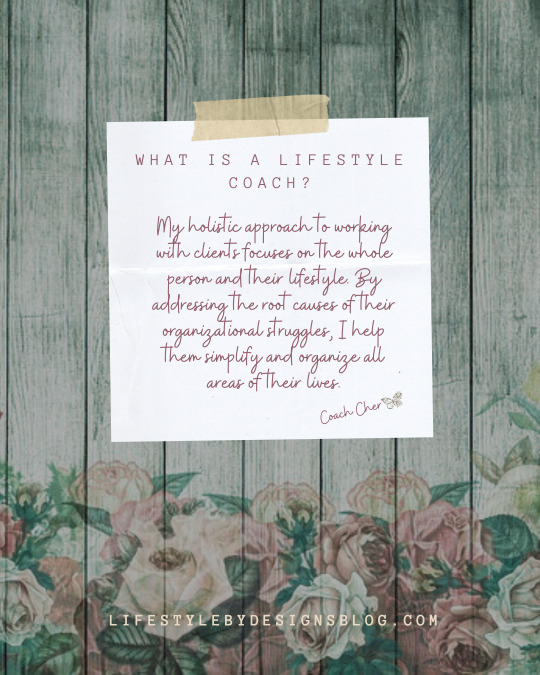 WHAT IS A LIFESTYLE
COACH?
My holistic approach to working
with clients focuses on the whole
person and their lifestyle. By
addressing the root causes of their
organizational struggles, I help
them simplify and organize all
areas of their lives.
Coach Cher
LIFESTYLEBYDESIGNSBLOG.COM